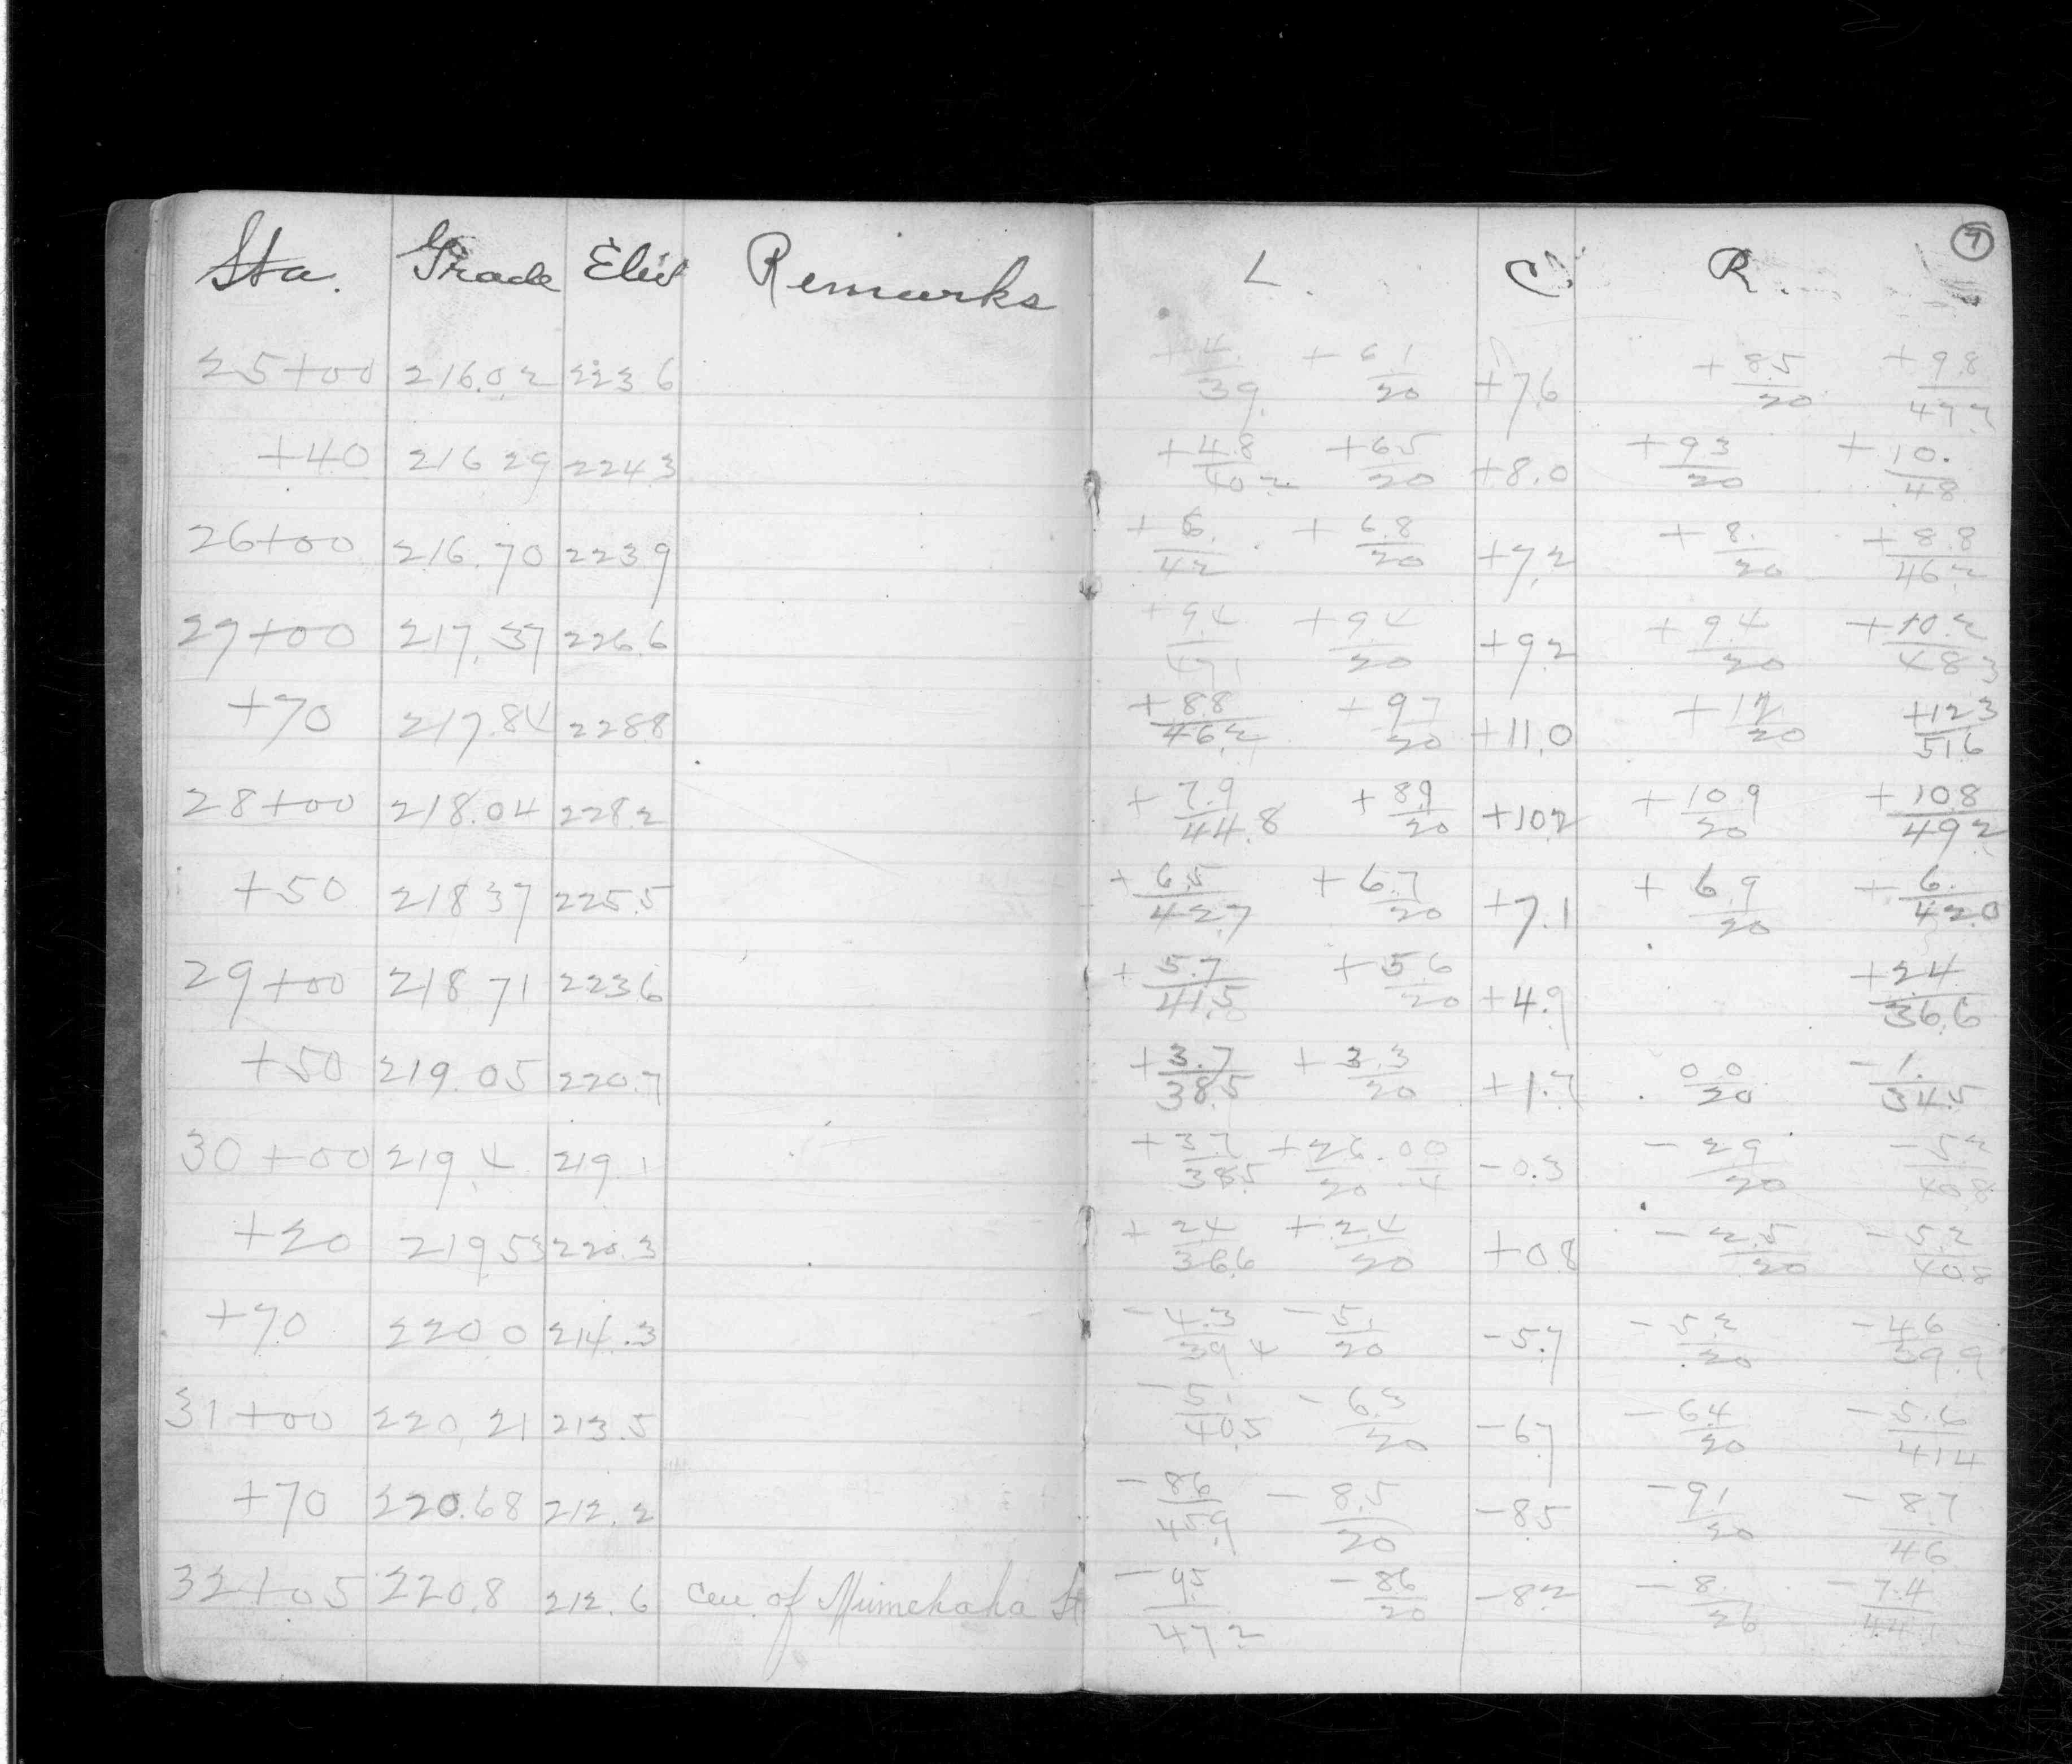 Sta. Grade Elev Remarks L. C. R. 7
25+00 216.02 223 6 +4./39. +6 1/20 +7.6 +8.5/20 +9.8/47 7
+40 216 29 224.3 +4.8/40 2 +6 5/20 +8.0 +9 3/20 +10./48
26+00 216.70 223 9 +5./42 +6.8/20 +7.2 +8./20 +8.8/46 2
27+00 217.37 226.6 +9.4/47 1 +9 4/20 +9.2 +9.4/20 +10.2/48 3
+70 217.84 228.8 +8 8/46.2 +9 7/20 +11.0 +12/20 +12 3/51 6
28+00 218.04 228.2 +7.9/44.8 +8.9/20 +10 2 +10.9/20 +10 8/49 2
+50 218 37 225.5 +6.5/42.7 +6.7/20 +7.1 +6.9/20 +6./42.0
29+00 218 71 223 6 +5.7/41.5 +5 6/20 +4.9 +2 4/36.6
+50 219.05 220.7 +3.7/38.5 +3.3/20 +1.7 0.0/20 -1./34.5
30+00 219.4 219 1 +3.7/38.5 +2 6/20 0 0/4 -0.3 -2 9/20 -5.2/40.8
+20 219.53 220.3 +2 4/36.6 +2.4/20 +0 8 -2.5/20 -5.2/40 8
+70 220 0 214.3 -4.3/39 4 -5./20 -5.7 -5.2/20 -4 6/39.9
31+00 220.21 213.5 -5./40.5 -6.3/20 -6 7 -6.4/20 -5.6/41 4
+70 220.68 212.2 -8 6/45.9 -8.5/20 -8.5 -9 1/20 -8.7/46
32+05 220.8 212.6 cen. of Minnehaha St -9 5/47 2 -8 6/20 -8 2 -8./26 -7.4/44